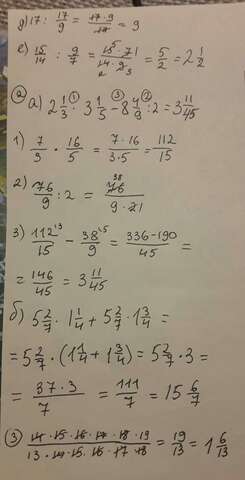 д) 17 : 17/9 = 17·9/17 = 9
е) 15/14 : 9/7 = 15·7 1/14·9 2 3 = 5/2 = 2 1/2
② а) 2 1/3 · 3 1/5 - 8 4/9 : 2 = 3 11/45
1) 7/3 · 16/5 = 7·16/3·5 = 112/15
2) 76/9 : 2 = 38 76/9·21
3) 112/15 - 38/9 = 336-190/45 =
= 146/45 = 3 11/45
б) 5 2/7 · 1 1/4 + 5 2/7 · 1 3/4 =
= 5 2/7 · (1 1/4 + 1 3/4) = 5 2/7 · 3 =
= 37·3/7 = 111/7 = 15 6/7
③ 14·15·16·17·18·19/13·14·15·16·17·18 = 19/13 = 1 6/13